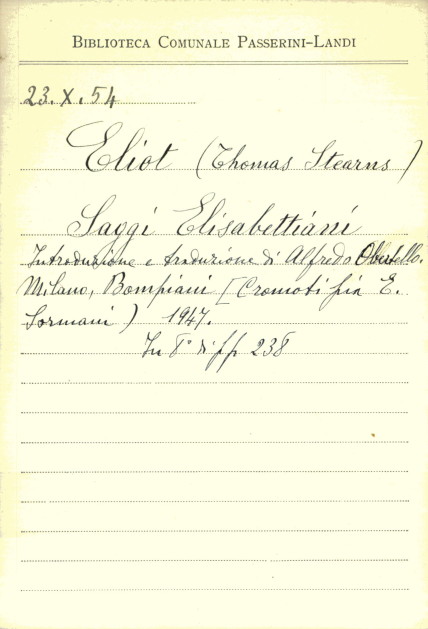 BIBLIOTECA COMUNALE PASSERINI-LANDI
23. X. 54
Eliot (Thomas Stearns)
Saggi Elisabettiani
Introduzione e traduzione di Alfredo Obertello.
Milano, Bompiani [Cromotipia E.
Sormani) 1947.
In 8° di pp 238